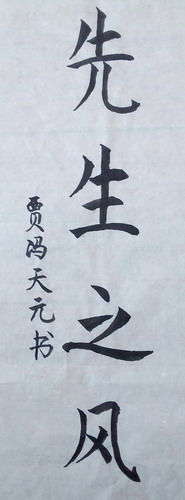 先生之风
贾冯天元书